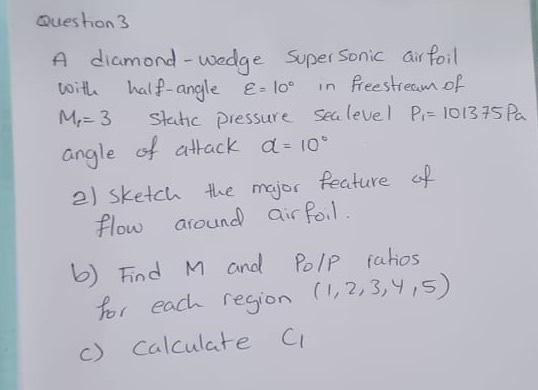 Question 3
A diamond-wedge Supersonic airfoil
with half-angle ε=10° in freestream of
M₁=3 Static pressure sealevel P₁=101375Pa
angle of attack α=10°
a) sketch the major feature of
flow around airfoil.
b) Find M and Po/P ratios
for each region (1,2,3,4,5)
c) Calculate Cl